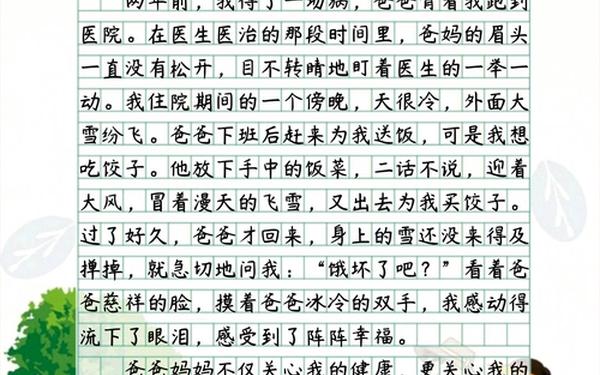 两年前，我得了一场病，爸爸背着我跑到
医院。在医生医治的那段时间里，爸妈的眉头
一直没有松开，目不转睛地盯着医生的一举一
动。我住院期间的一个傍晚，天很冷，外面大
雪纷飞。爸爸下班后赶来为我送饭，可是我想
吃饺子。他放下手中的饭菜，二话不说，迎着
大风，冒着漫天的飞雪，又出去为我买饺子。
过了好久，爸爸才回来，身上的雪还没来得及
掸掉，就急切地问我：“饿坏了吧？”看着爸
爸慈祥的脸，摸着爸爸冰冷的双手，我感动得
流下了眼泪，感受到了阵阵幸福。
爸爸妈妈不仅关心我的健康，更关心我的